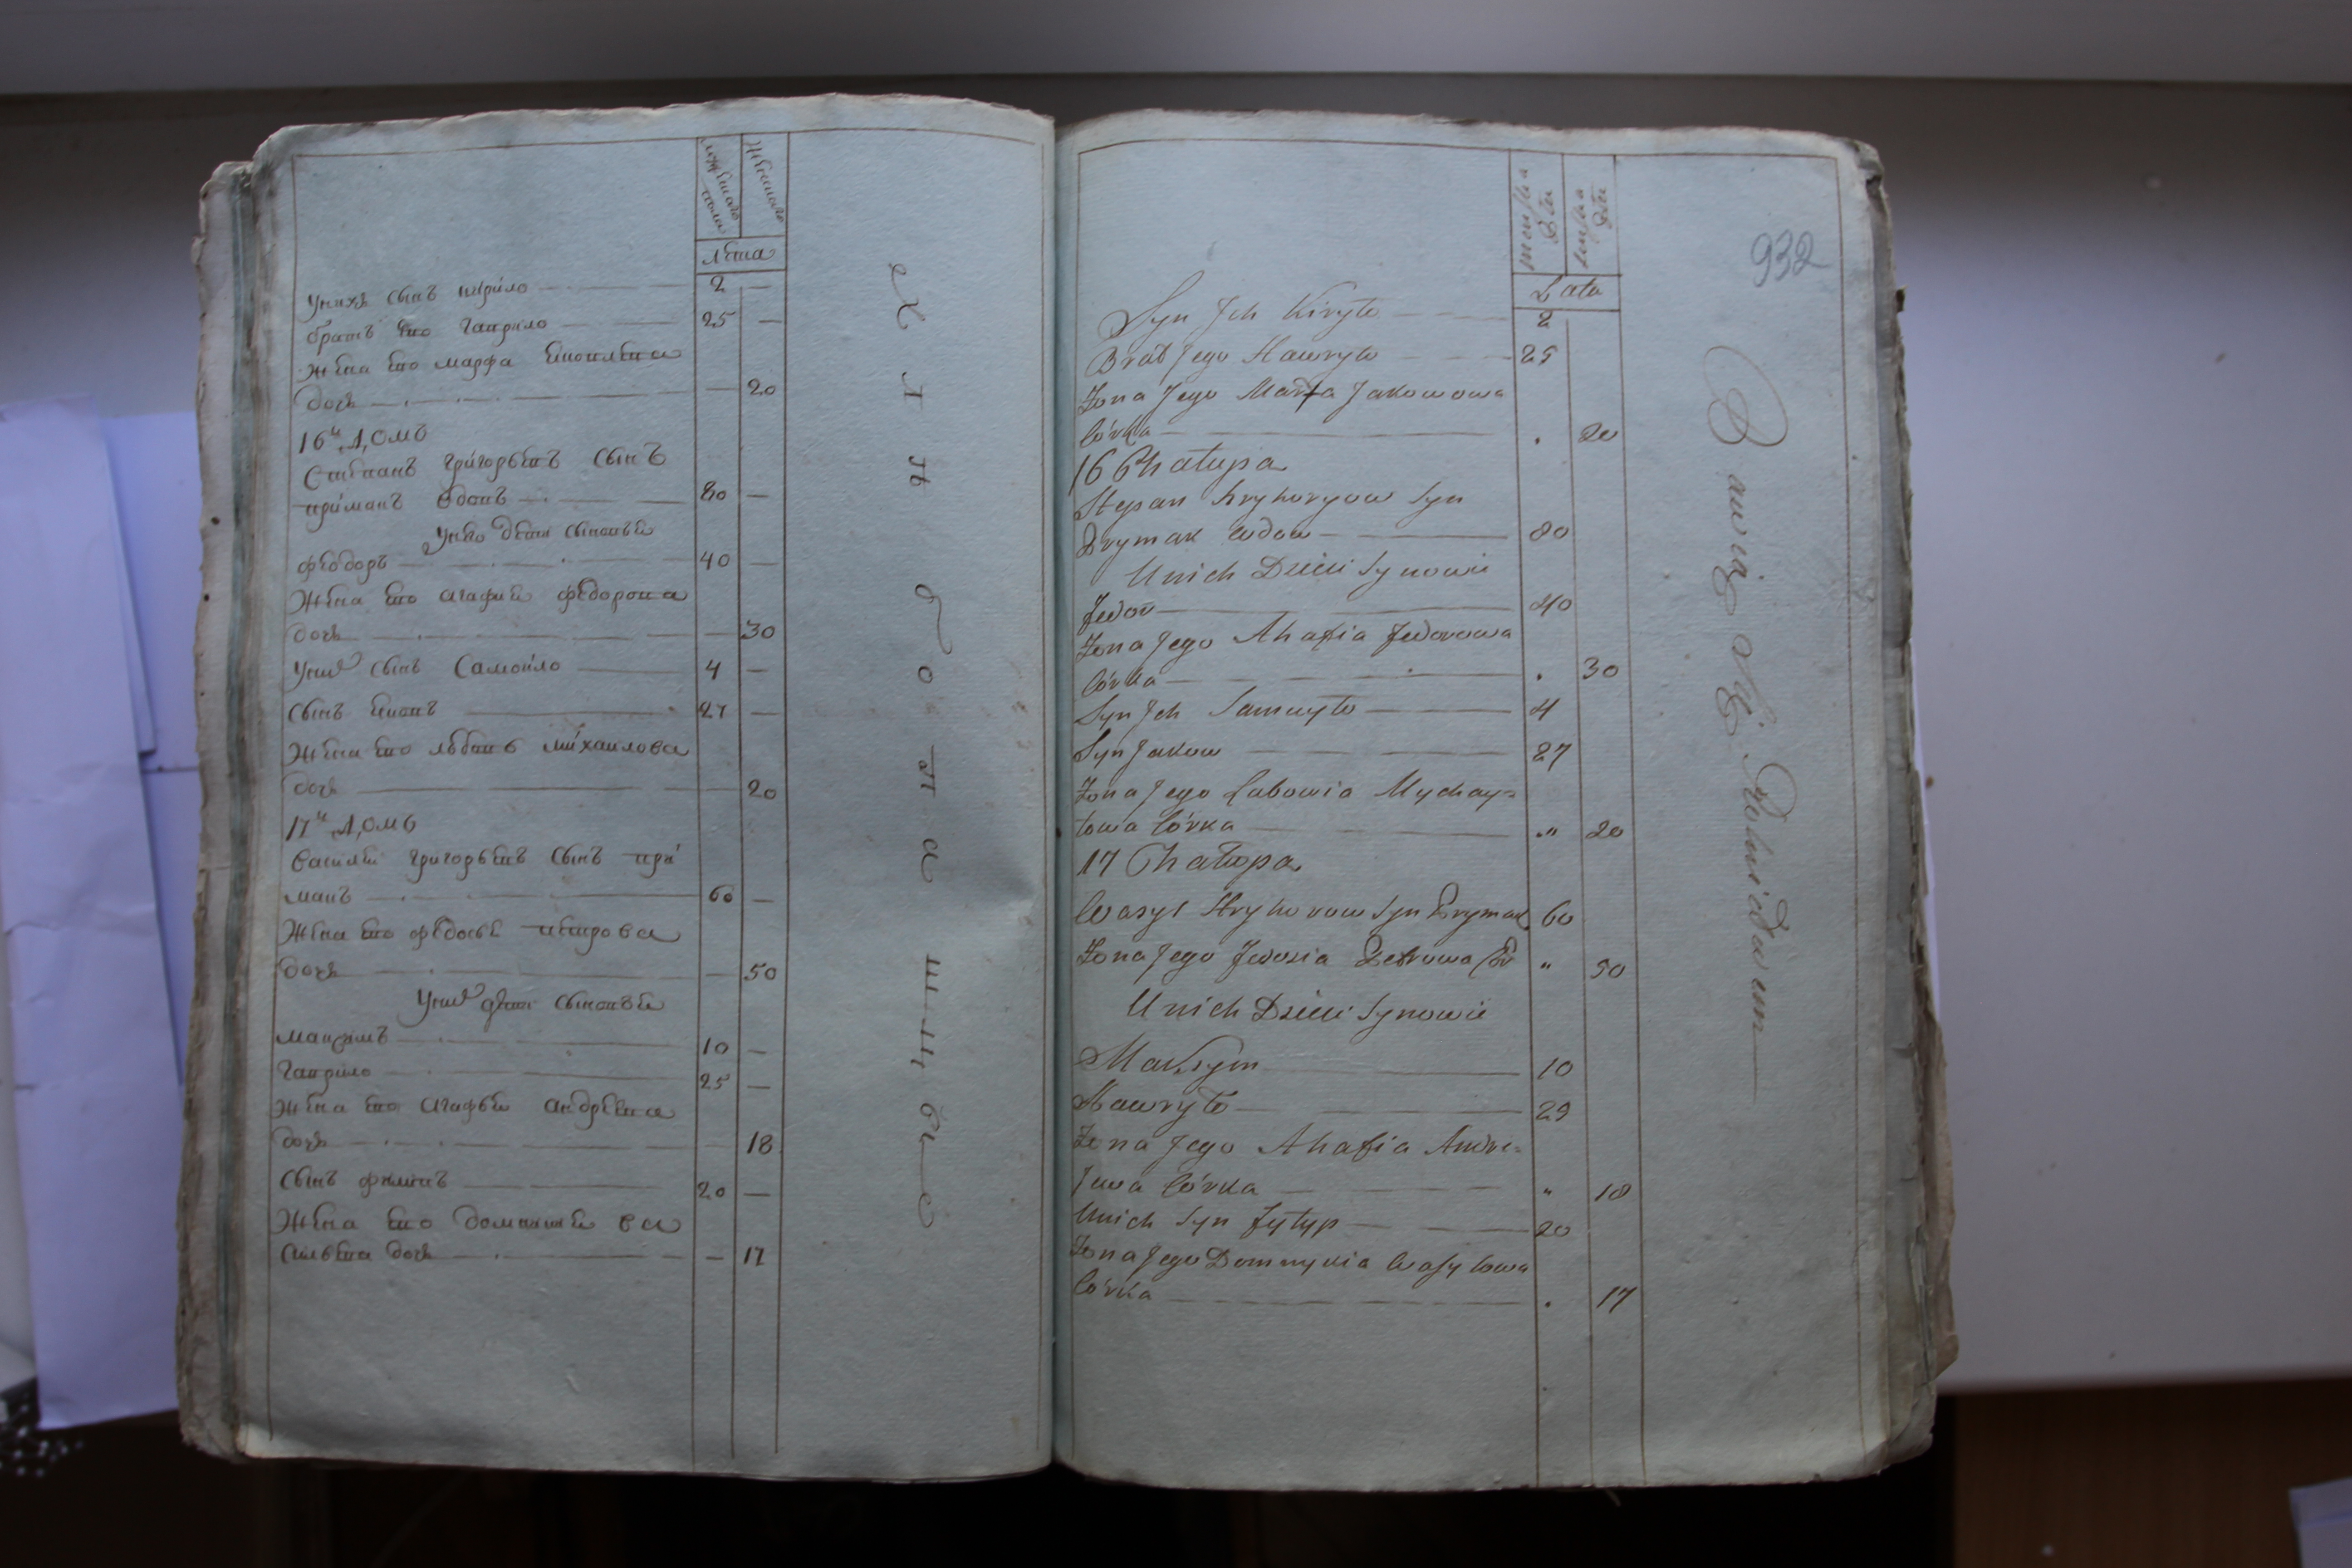 мужеска пола
женска
лета
у нихъ сынъ кирило 2 —
братъ ево гаврило 25 —
жена ево марфа яковлева
дочь — 20
16й домъ
Степанъ григорьевъ сынъ
примакъ вдовъ 80 —
у нево дети сыновья
федоръ 40 —
жена ево агафия федорова
дочь — 30
у них сынъ самойло 4 —
сынъ яковъ 27 —
жена ево любовь михайлова
дочь — 20
17й домъ
василей григорьевъ сынъ при
макъ 60 —
жена ево федосья петрова
дочь — 50
у них дети сыновья
максимъ 10 —
гаврило 25 —
жена ево агафья андреева
дочь — 18
сынъ филипъ 20 —
жена ево доминикия ва
сильева дочь — 17
хлѣбопашцы
932
męska
Płci
żeńska
Płci
Lata
Syn Jch Kiryło 2
Brat Jego Hawryło 25
Żona Jego Marfa Jakowowa
Córka . 20
16 Chałupa
Stepan Hryhoryow Syn
Prymak Wdow 80
Unich Dzieci Synowie
Fedor 40
Żona Jego Ahafia Fedorowa
Córka . 30
Syn Jch Samuyło 4
Syn Jakow 27
Żona Jego Lubowia Mychay=
łowa Córka " 20
17 Chałupa
Wasyl Hryhorow Syn Prymak 60
Żona Jego Fedosia Petrowa Cór " 50
Unich Dzieci Synowie
Maksym 10
Hawryło 25
Żona Jego Ahafia Andre=
jewa Córka " 18
Unich Syn Fylyp 20
Żona Jego Domnykia Wasylowa
Córka . 17
Bawią Się Rolnictwem